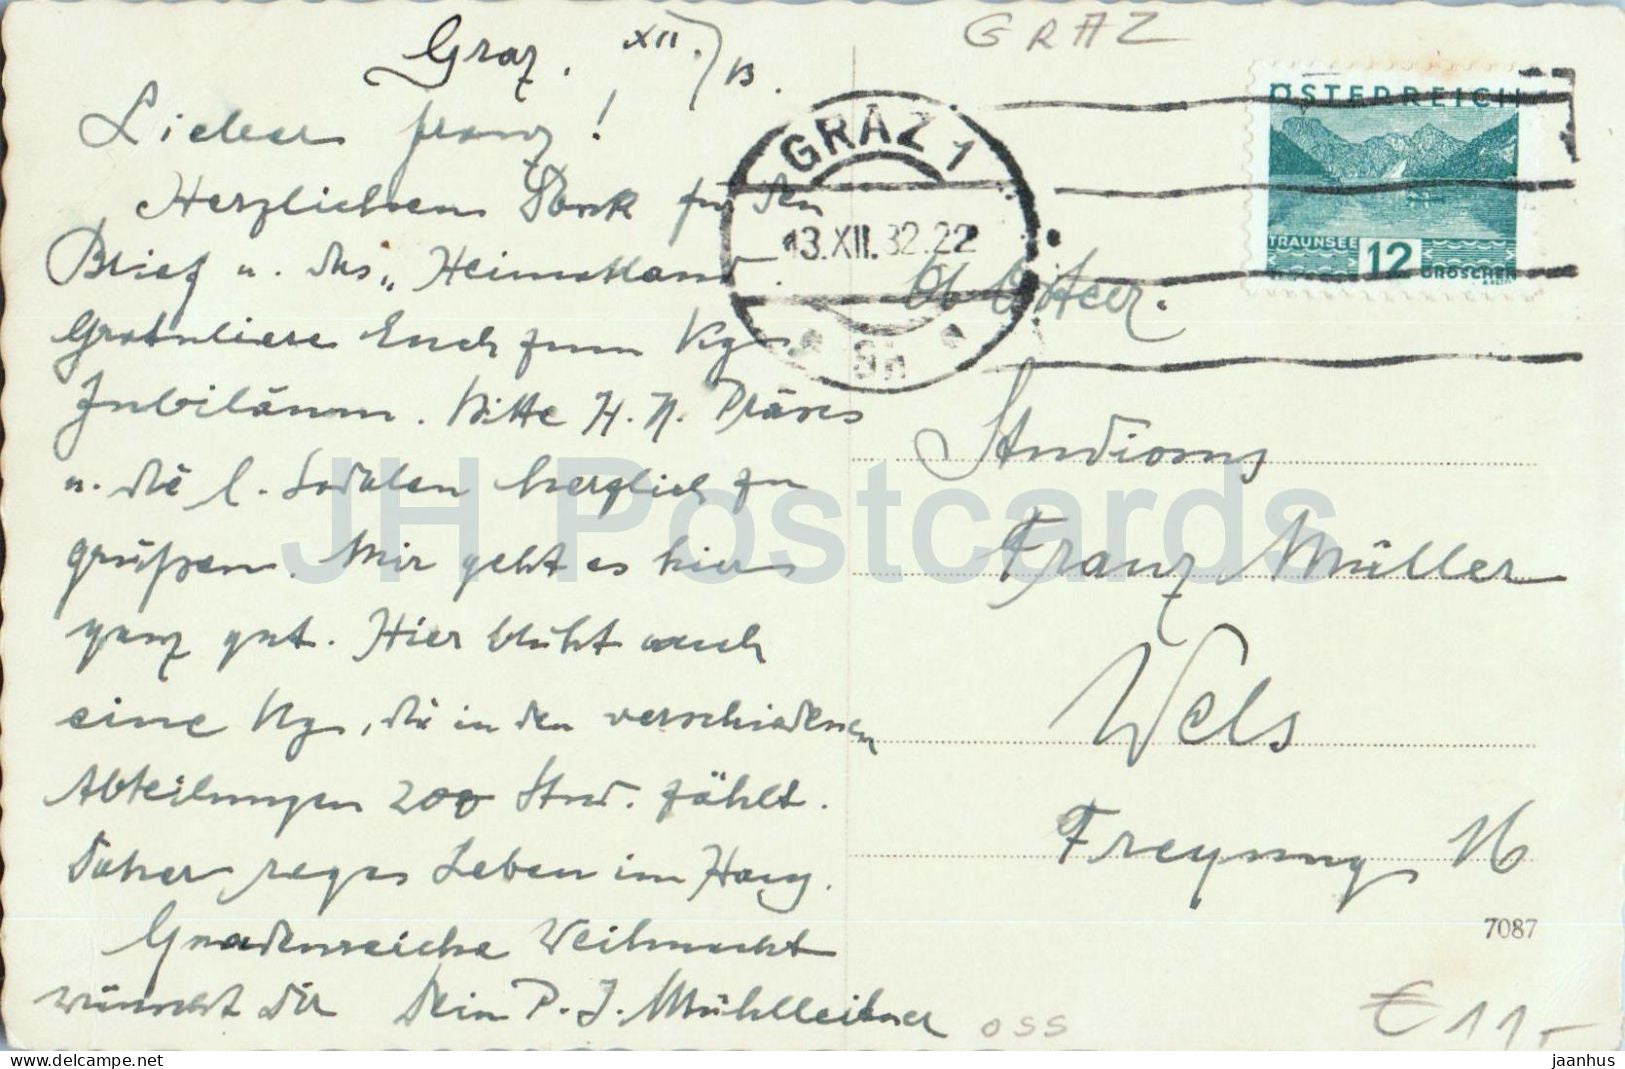 GRAZ
Graz, XII./13.
Lieber Franz!
Herzlichen Dank für den
Brief u. das „Heimatland
Gratuliere Euch zum Kgs
Jubiläum. Bitte H. H. Präses
u. die l. Sodalen herzlich zu
grüßen. Mir geht es hier
ganz gut. Hier blüht auch
eine Kg, die in den verschiedenen
Abteilungen 200 Stud. zählt.
Daher reges Leben im Haus.
Gnadenreiche Weihnacht
wünscht dir Dein P. J. Mühlleitner
oss
GRAZ 1
13.XII.32.22
8h
ÖSTERREICH
TRAUNSEE
12
GROSCHEN
Ob Öster.
Studiosus
Franz Müller
Wels
Freyung 16
7087
€ 11,-
JH Postcards
www.delcampe.net
jaanhus